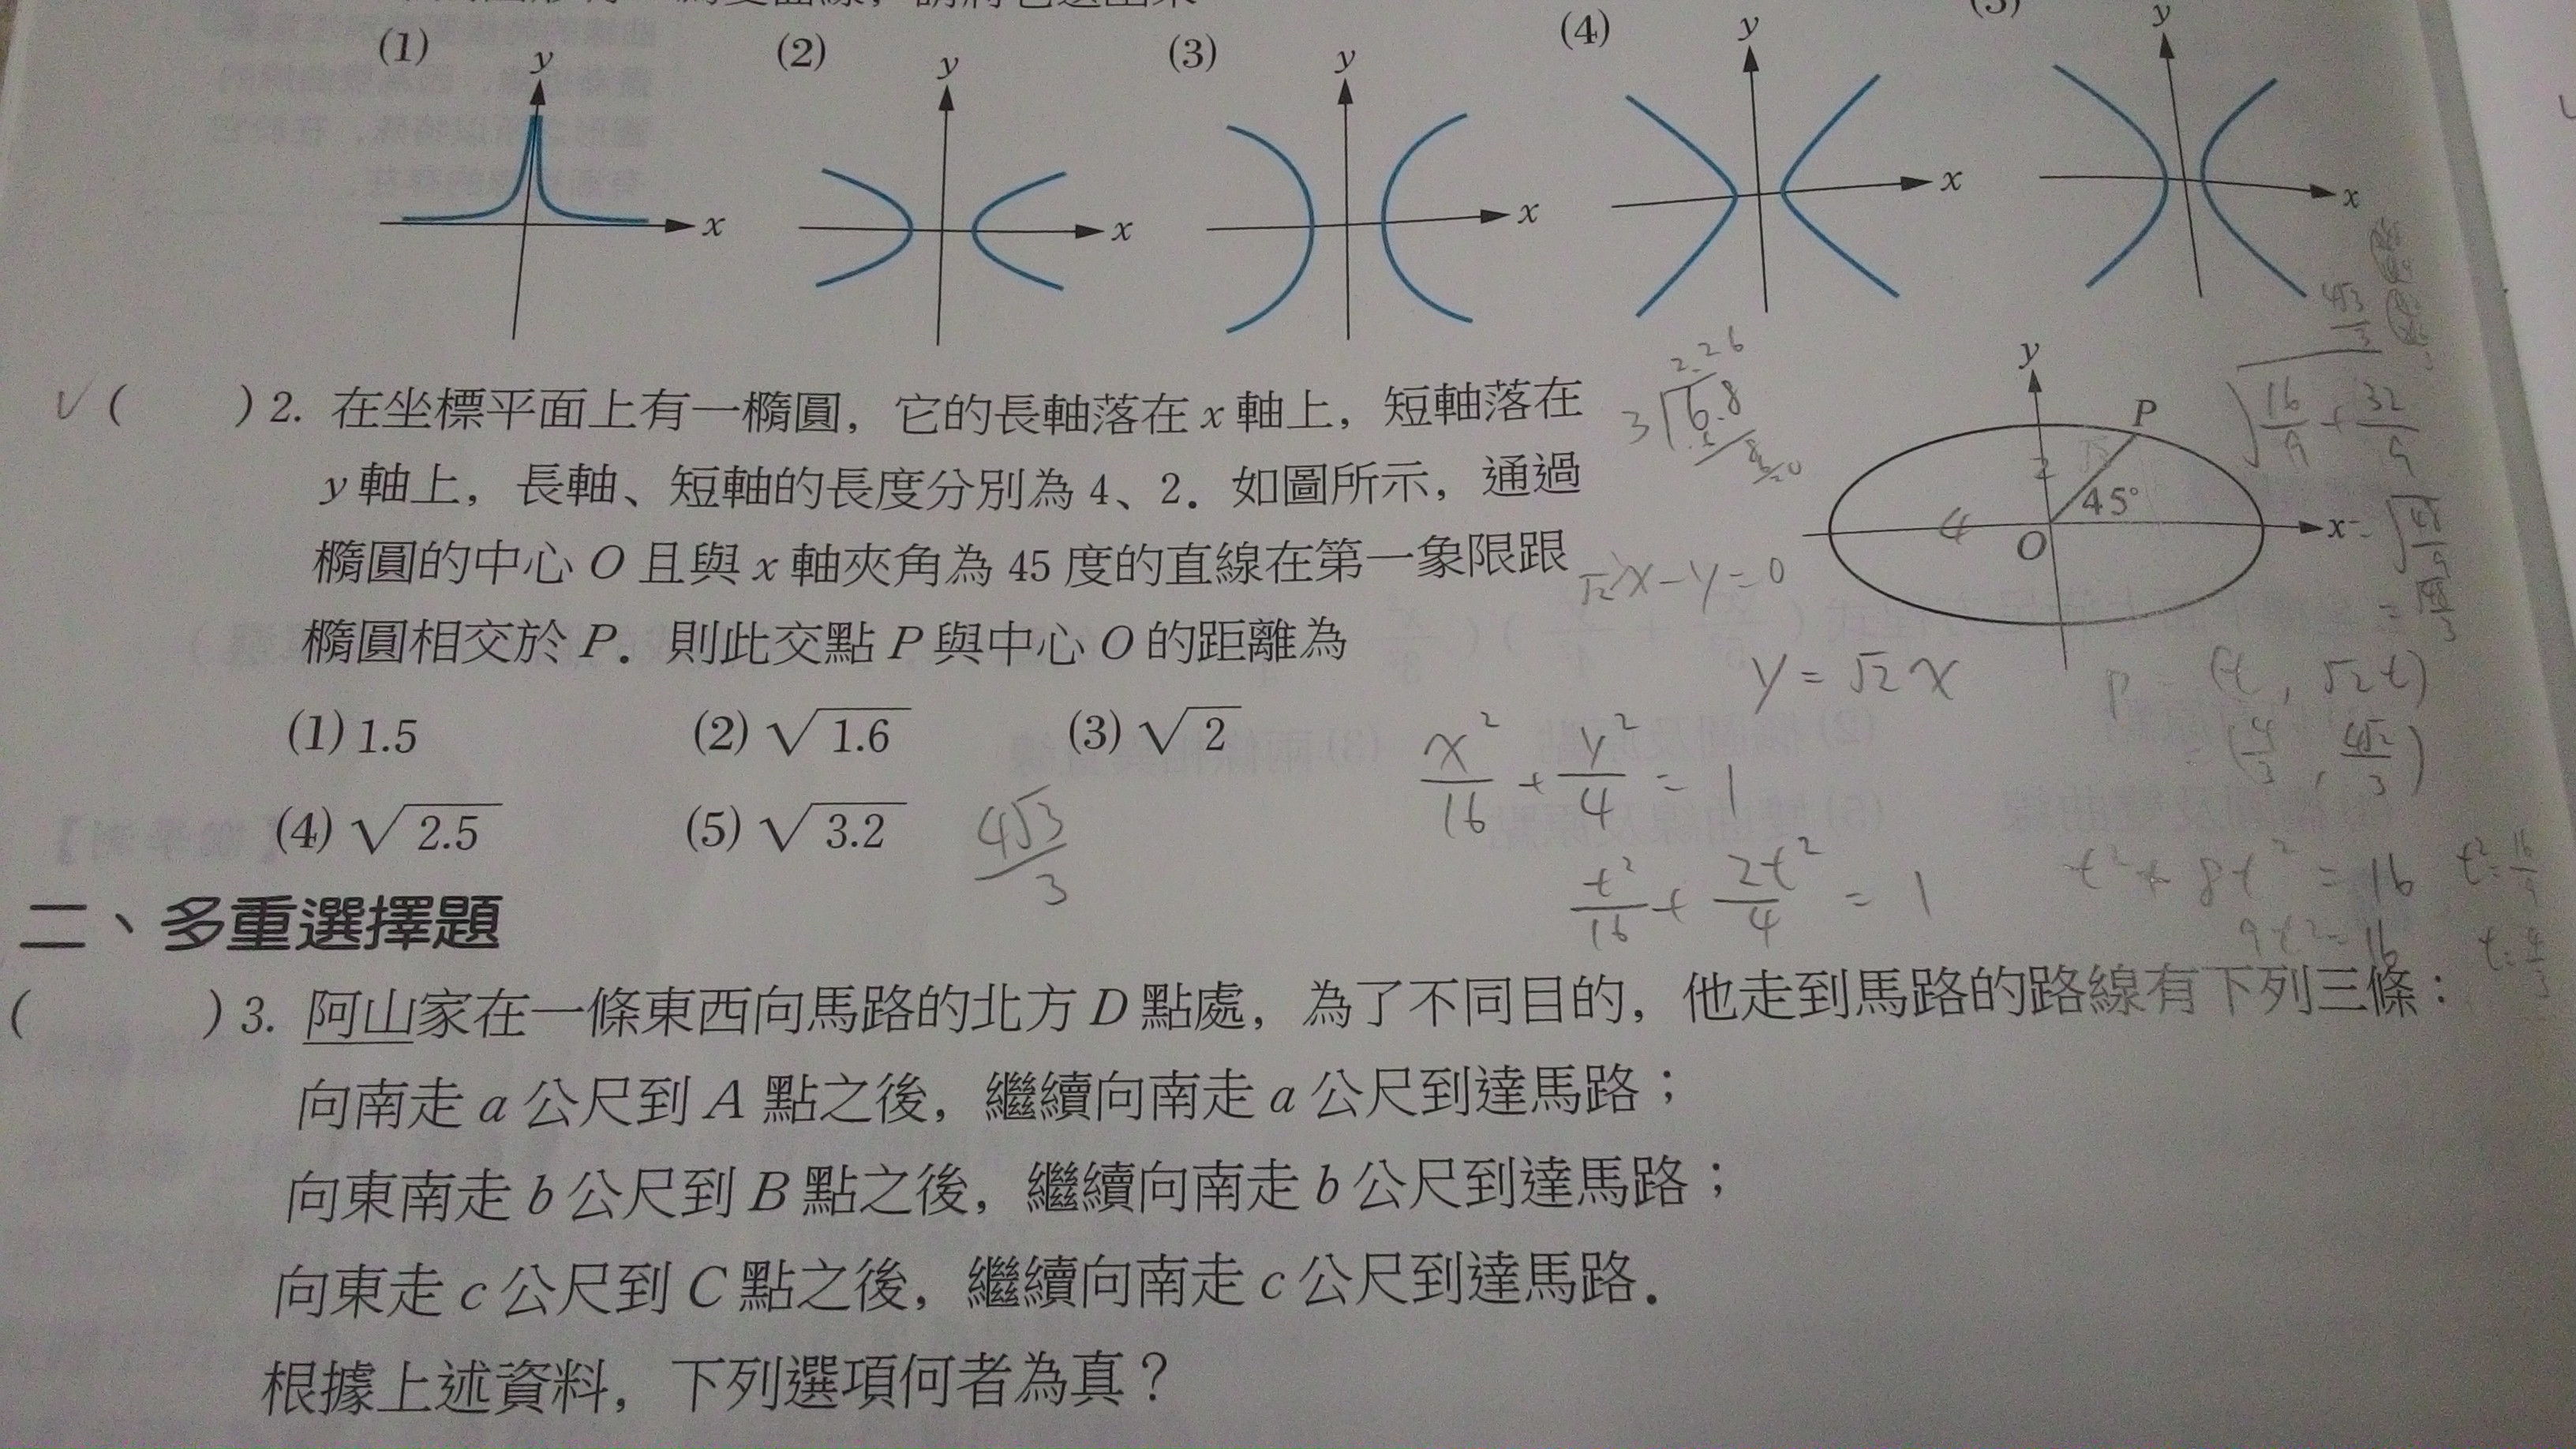 (1) (2) (3) (4) (5)
y y y y y
x x x x x
( ) 2. 在坐標平面上有一橢圓，它的長軸落在 x 軸上，短軸落在
y 軸上，長軸、短軸的長度分別為 4、2．如圖所示，通過
橢圓的中心 O 且與 x 軸夾角為 45 度的直線在第一象限跟
橢圓相交於 P．則此交點 P 與中心 O 的距離為
(1) 1.5 (2) √1.6 (3) √2
(4) √2.5 (5) √3.2
4√3/3
y
P
45°
O
x
4
2
2.26
3 6.8
x-y=0
y=√2x
x²/16+y²/4=1
t²/16+2t²/4=1
4√3/3
√16/9+32/9
P=(t,√2t)
(4/3,4√2/3)
t²+8t²=16
9t²=16
t²=16/9
t=4/3
二、多重選擇題
( ) 3. 阿山家在一條東西向馬路的北方 D 點處，為了不同目的，他走到馬路的路線有下列三條：
向南走 a 公尺到 A 點之後，繼續向南走 a 公尺到達馬路；
向東南走 b 公尺到 B 點之後，繼續向南走 b 公尺到達馬路；
向東走 c 公尺到 C 點之後，繼續向南走 c 公尺到達馬路．
根據上述資料，下列選項何者為真？